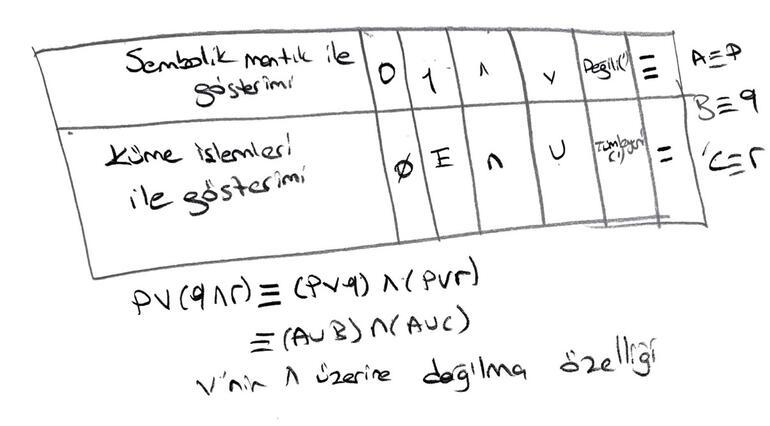 Sembolik mantık ile gösterimi 0 1 ∧ ∨ Değili(') ≡ A≡P
B≡q
Küme işlemleri ile gösterimi ∅ E ∩ ∪ Tümleyeni (') = C≡r
PV(q∧r)≡ (PVq) ∧ (PVr)
≡ (AUB) ∩ (AUC)
V'nin ∧ üzerine dağılma özelliği